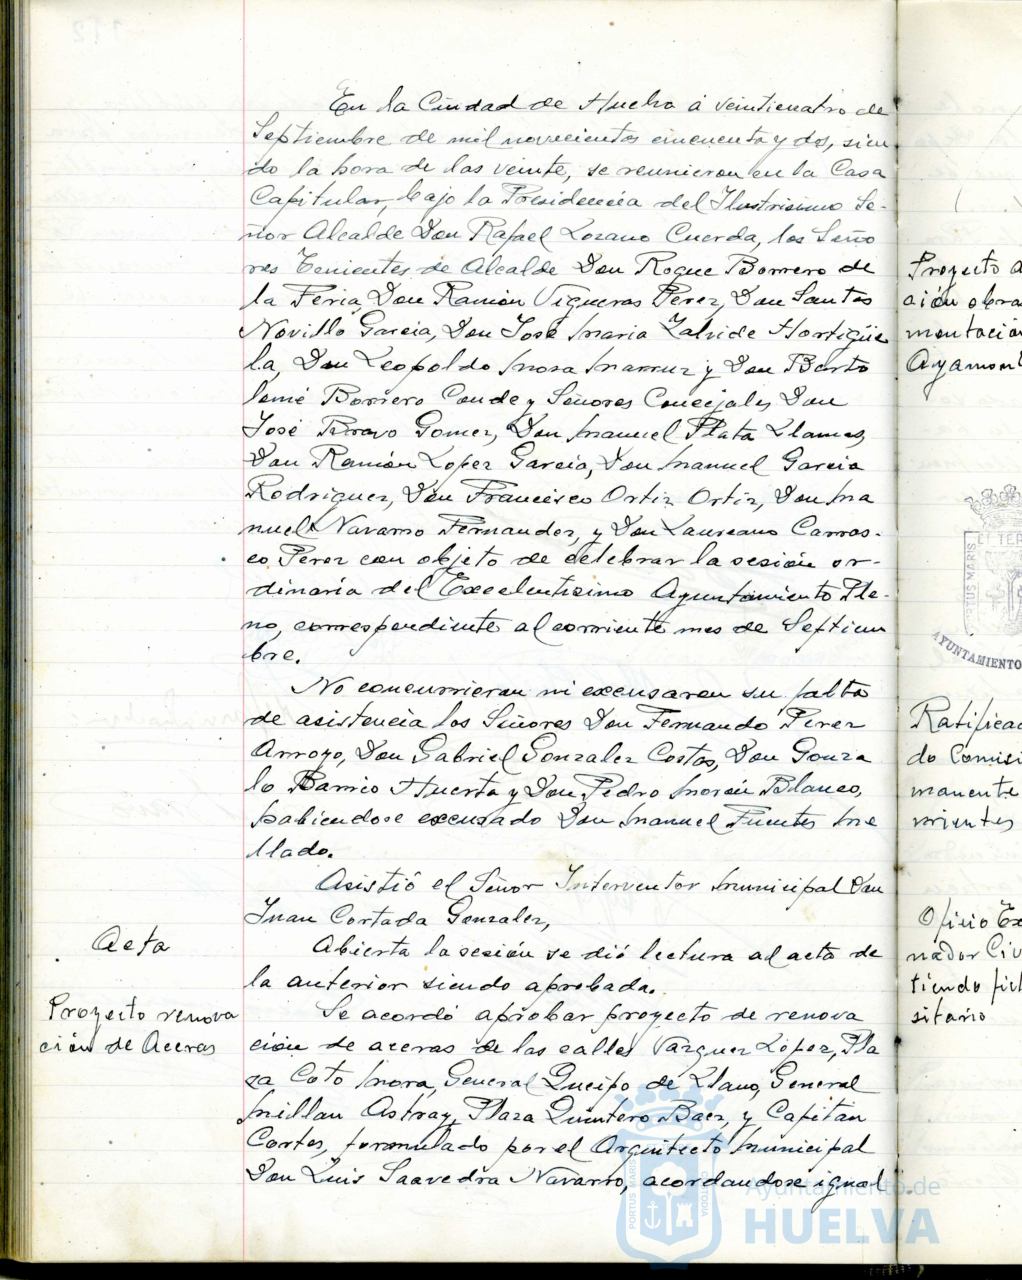 En la Ciudad de Huelva á veinticuatro de
Septiembre de mil novecientos cincuenta y dos, sien
do la hora de las veinte, se reunieron en la Casa
Capitular, bajo la Presidencia del Ilustrisimo Se-
ñor Alcalde Don Rafael Lozano Cuerda, los Seño
res Tenientes de Alcalde Don Roque Borrero de
la Feria, Don Ramón Vigueras Perez, Don Santos
Novillo Garcia, Don José Maria Zalvide Hortigüe
la, Don Leopoldo Mora y Don Barto
lomé Borrero Conde y Señores Concejales, Don
José Bravo Gomez, Don Manuel Plata Llamas,
Don Ramón Lopez Garcia, Don Manuel Garcia
Rodriguez, Don Francisco Ortiz Ortiz, Don Ma
nuel Navarro Fernandez, y Don Laureano Carras-
co Perez con objeto de celebrar la sesión or-
dinaria del Excelentisimo Ayuntamiento Ple-
no, correspondiente al corriente mes de Septiem
bre.
No concurrieron ni excusaron su falta
de asistencia los Señores Don Fernando Perez
Arroyo, Don Gabriel Gonzalez Costas, Don Gonza
lo Barrio Huerta y Don Pedro Morón Blanco,
habiendose excusado Don Manuel Fuentes Me
llado.
Asistió el Señor Interventor Municipal Don
Juan Cortada Gonzalez,
Acta
Abierta la sesión se dió lectura al acta de
la anterior siendo aprobada.
Proyecto renova
ción de Aceras
Se acordó aprobar proyecto de renova
ción de aceras de las calles Vazquez Lopez, Pla
za Coto Mora, General Queipo de Llano, General
Millan Astray, Plaza Quintero Baez, y Capitan
Cortes, formulado por el Arquitecto Municipal
Don Luis Saavedra Navarro, acordandose igual
Proyecto
ción obra
mentación
Ayamont
ET TER
PORTUS MARIS
AYUNTAMIENTO
Ratificac
do Comisi
manente
Oficio Ex
nador Civ
tiendo
sitario
PORTUS MARIS
CUSTODIA
Ayuntamiento de
HUELVA